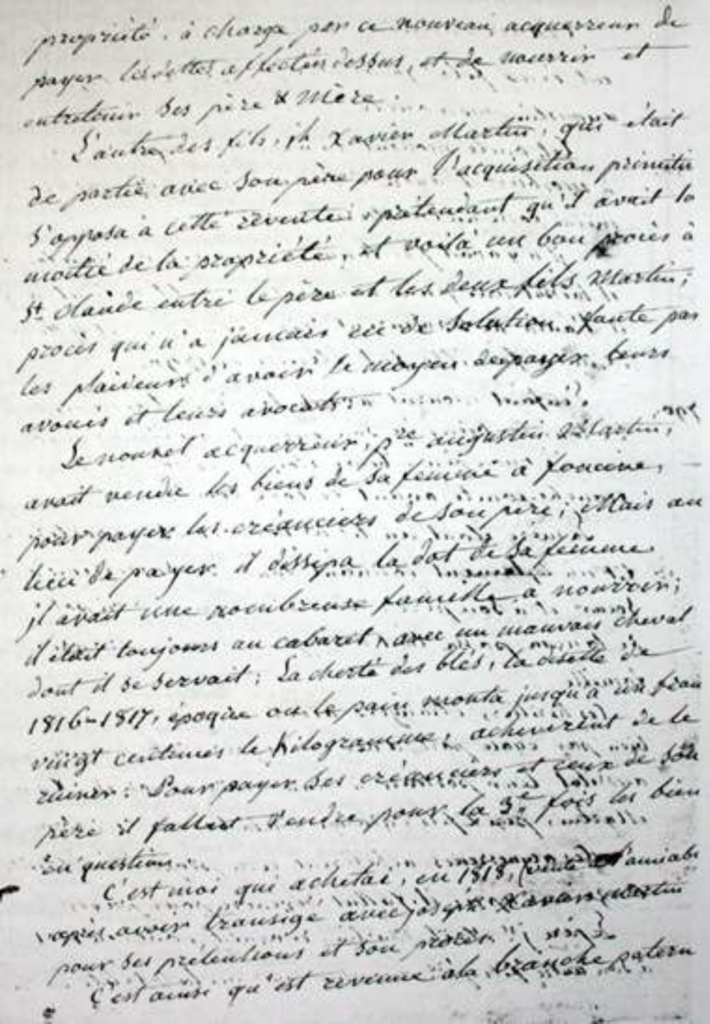 propriété. à charge par ce nouveau acquerreur de
payer les dettes affectées dessus, et de nourrir et
entretenir ses père & mère.
L'autre des fils, jh Xavier Martin, qui était
de partie avec son père pour l'acquisition primitive
s'opposa à cette revente prétendant qu'il avait la
moitié de la propriété, et voilà un bon procès à
St Claude entre le père et les deux fils Martin;
procès qui n'a jamais eu de solution, faute par
les plaideurs d'avoir le moyen de payer leurs
avoués et leurs avocats.
Le nouvel acquerreur, pre augustin Martin,
avait vendu les biens de sa femme à foncine,
pour payer les créanciers de son père; Mais au
lieu de payer il dissipa la dot de sa femme
il avait une nombreuse famille à nourrir;
il était toujours au cabaret, avec un mauvais cheval
dont il se servait; La cherté des blés, la disette de
1816-1817, époque où le pain monta jusqu'à un fran
vingt centimes le Kilogramme, achevèrent de le
ruiner: Pour payer ses créanciers et ceux de son
père il fallut vendre pour la 3e fois les bien
en question.
C'est moi qui achetai, en 1818, (vente à l'amiabl
après avoir transigé avec joseph Xavier Martin
pour ses prétentions et son procès
C'est ainsi qu'est revenue à la branche patern